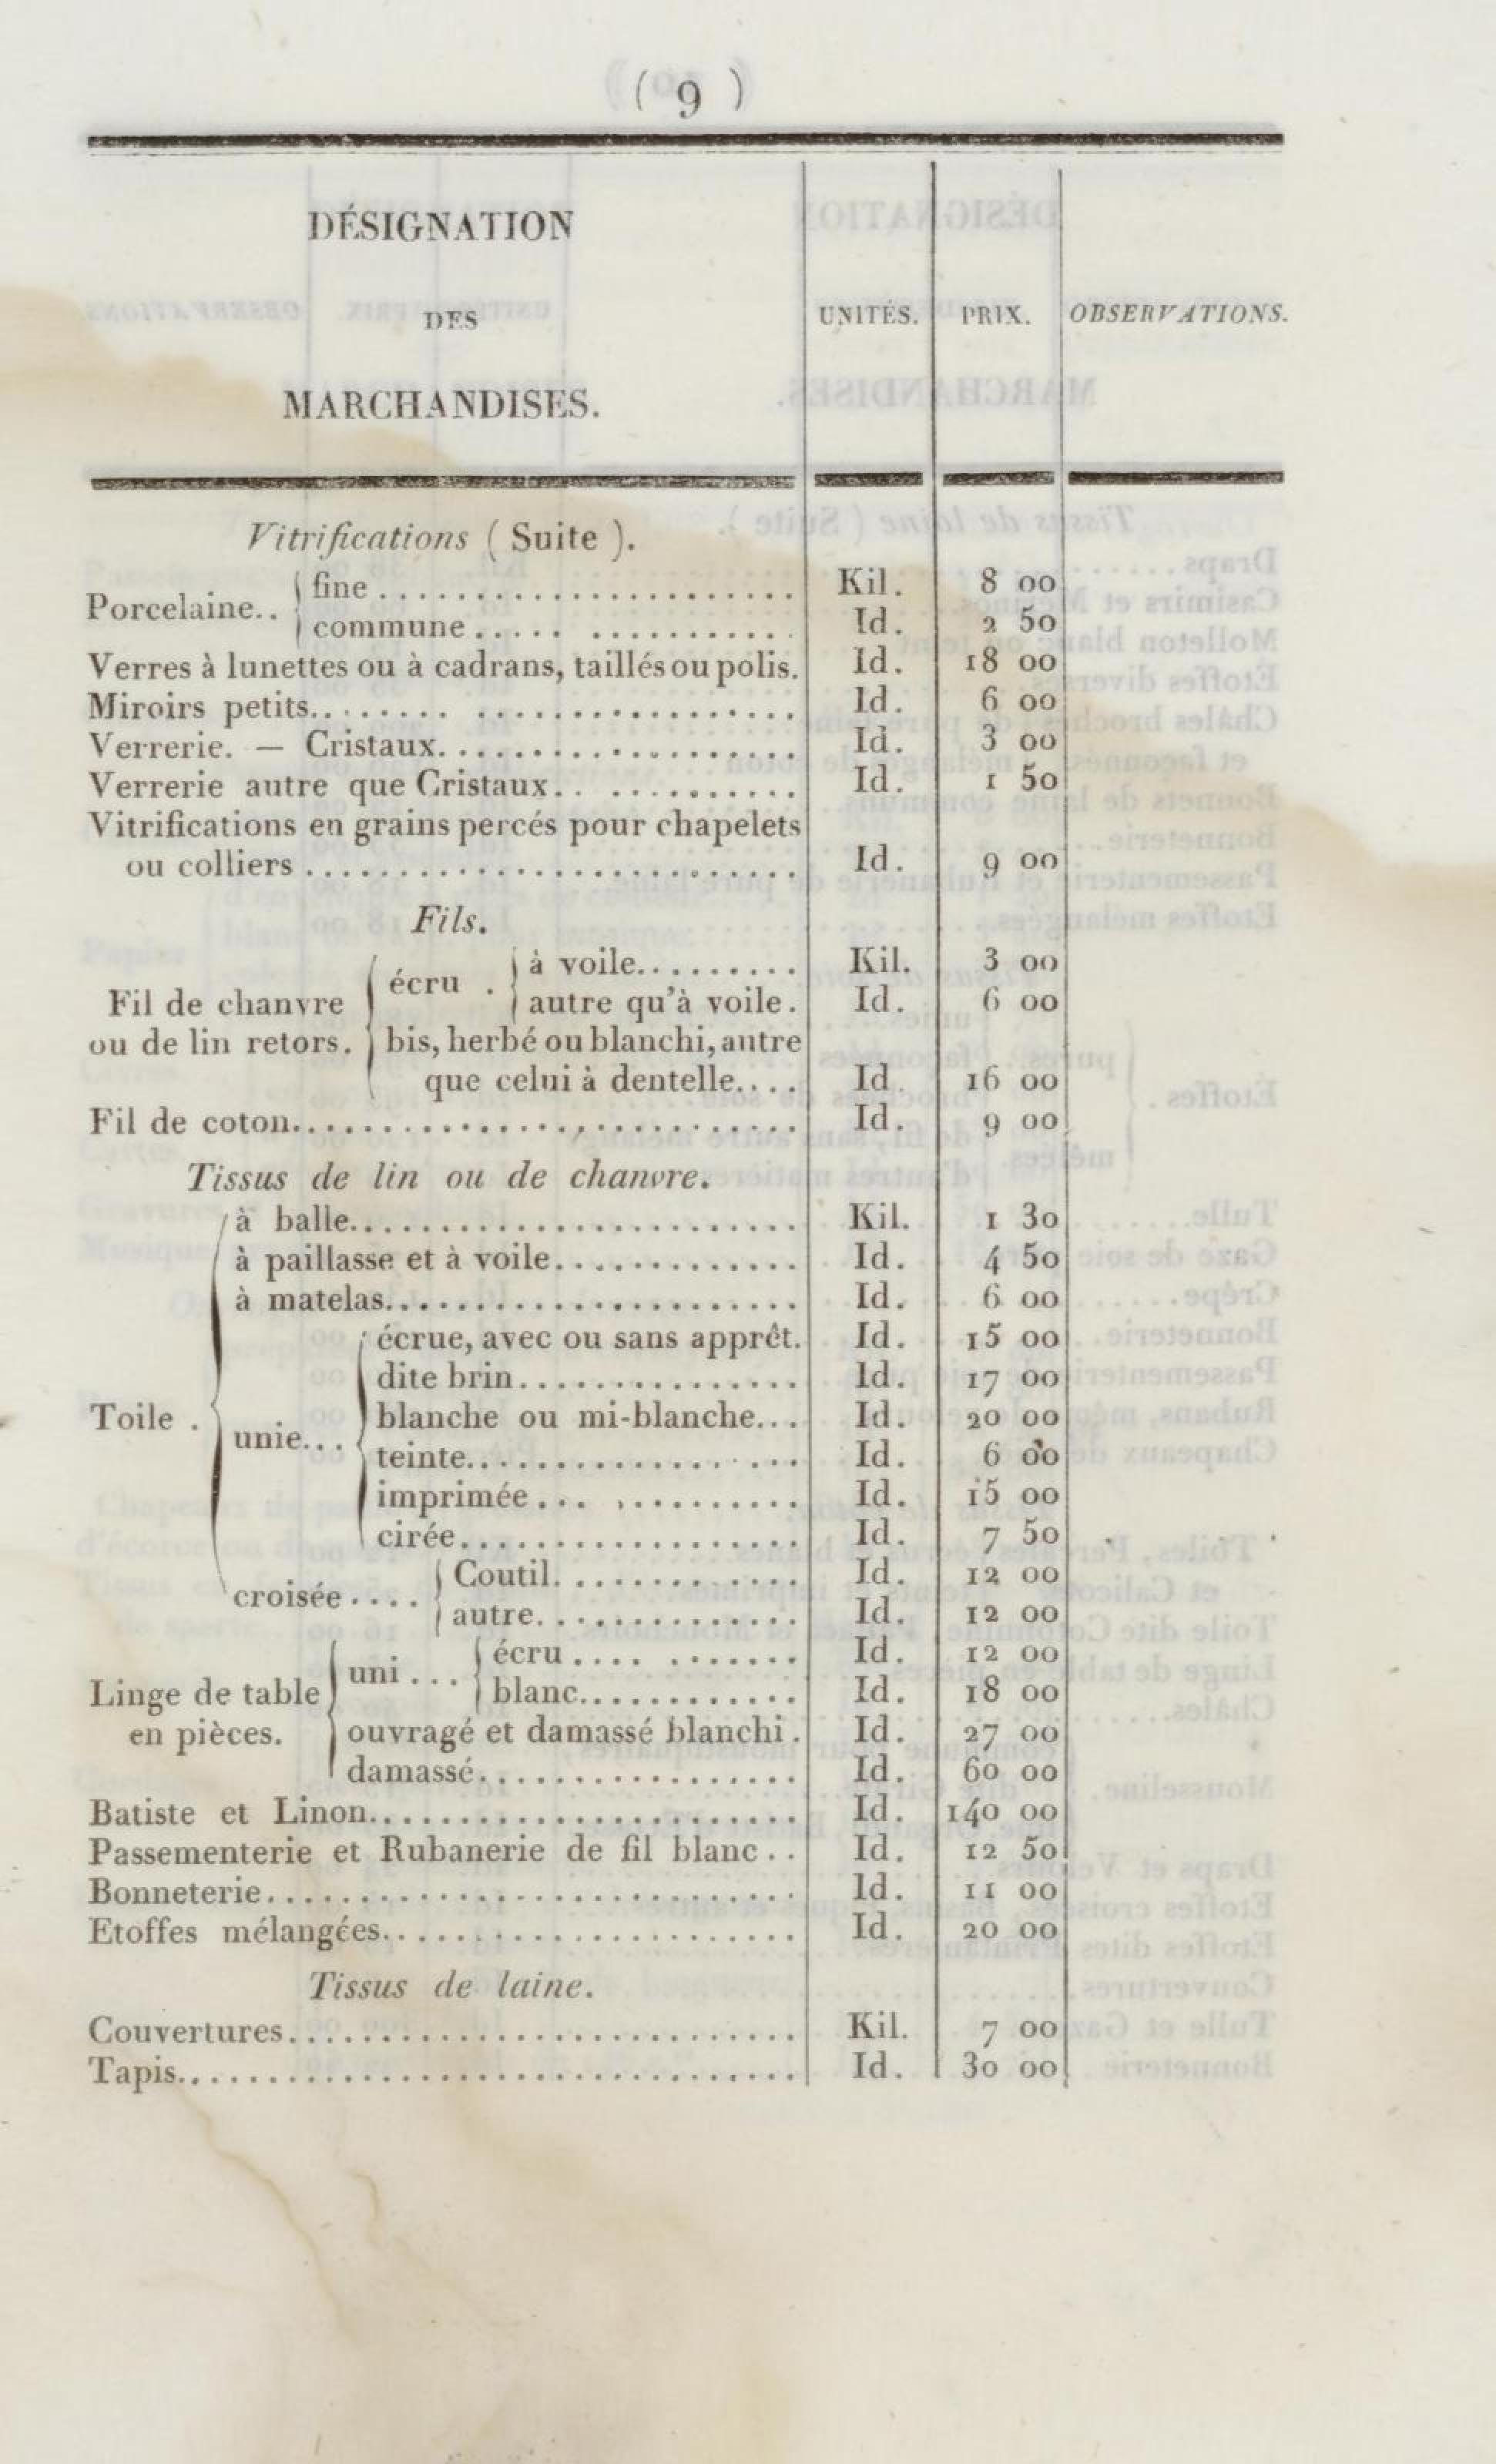 ( 9 )
DÉSIGNATION
DES
MARCHANDISES.
UNITÉS. PRIX. OBSERVATIONS.
Vitrifications ( Suite ).
Porcelaine.. fine ...................... Kil. 8 00
commune ..... ........... Id. 2 50
Verres à lunettes ou à cadrans, taillés ou polis. Id. 18 00
Miroirs petits........ ................. Id. 6 00
Verrerie. — Cristaux................... Id. 3 00
Verrerie autre que Cristaux.. .......... Id. 1 50
Vitrifications en grains percés pour chapelets
ou colliers ........................... Id. 9 00
Fils.
Fil de chanvre ou de lin retors. écru . à voile......... Kil. 3 00
autre qu'à voile. Id. 6 00
bis, herbé ou blanchi, autre
que celui à dentelle.... Id 16 00
Fil de coton........................... Id. 9 00
Tissus de lin ou de chanvre.
Toile . à balle......................... Kil. 1 30
à paillasse et à voile............. Id. 4 50
à matelas....................... Id. 6 00
unie... écrue, avec ou sans apprêt. Id. 15 00
dite brin............... Id. 17 00
blanche ou mi-blanche... Id. 20 00
teinte.................. Id. 6 00
imprimée ... .......... Id. 15 00
cirée................... Id. 7 50
croisée .... Coutil............. Id. 12 00
autre.............. Id. 12 00
Linge de table en pièces. uni ... écru .... ....... Id. 12 00
blanc............ Id. 18 00
ouvragé et damassé blanchi. Id. 27 00
damassé.................. Id. 60 00
Batiste et Linon........................ Id. 140 00
Passementerie et Rubanerie de fil blanc .. Id. 12 50
Bonneterie............................. Id. 11 00
Etoffes mélangées....................... Id. 20 00
Tissus de laine.
Couvertures............................ Kil. 7 00
Tapis.................................. Id. 30 00